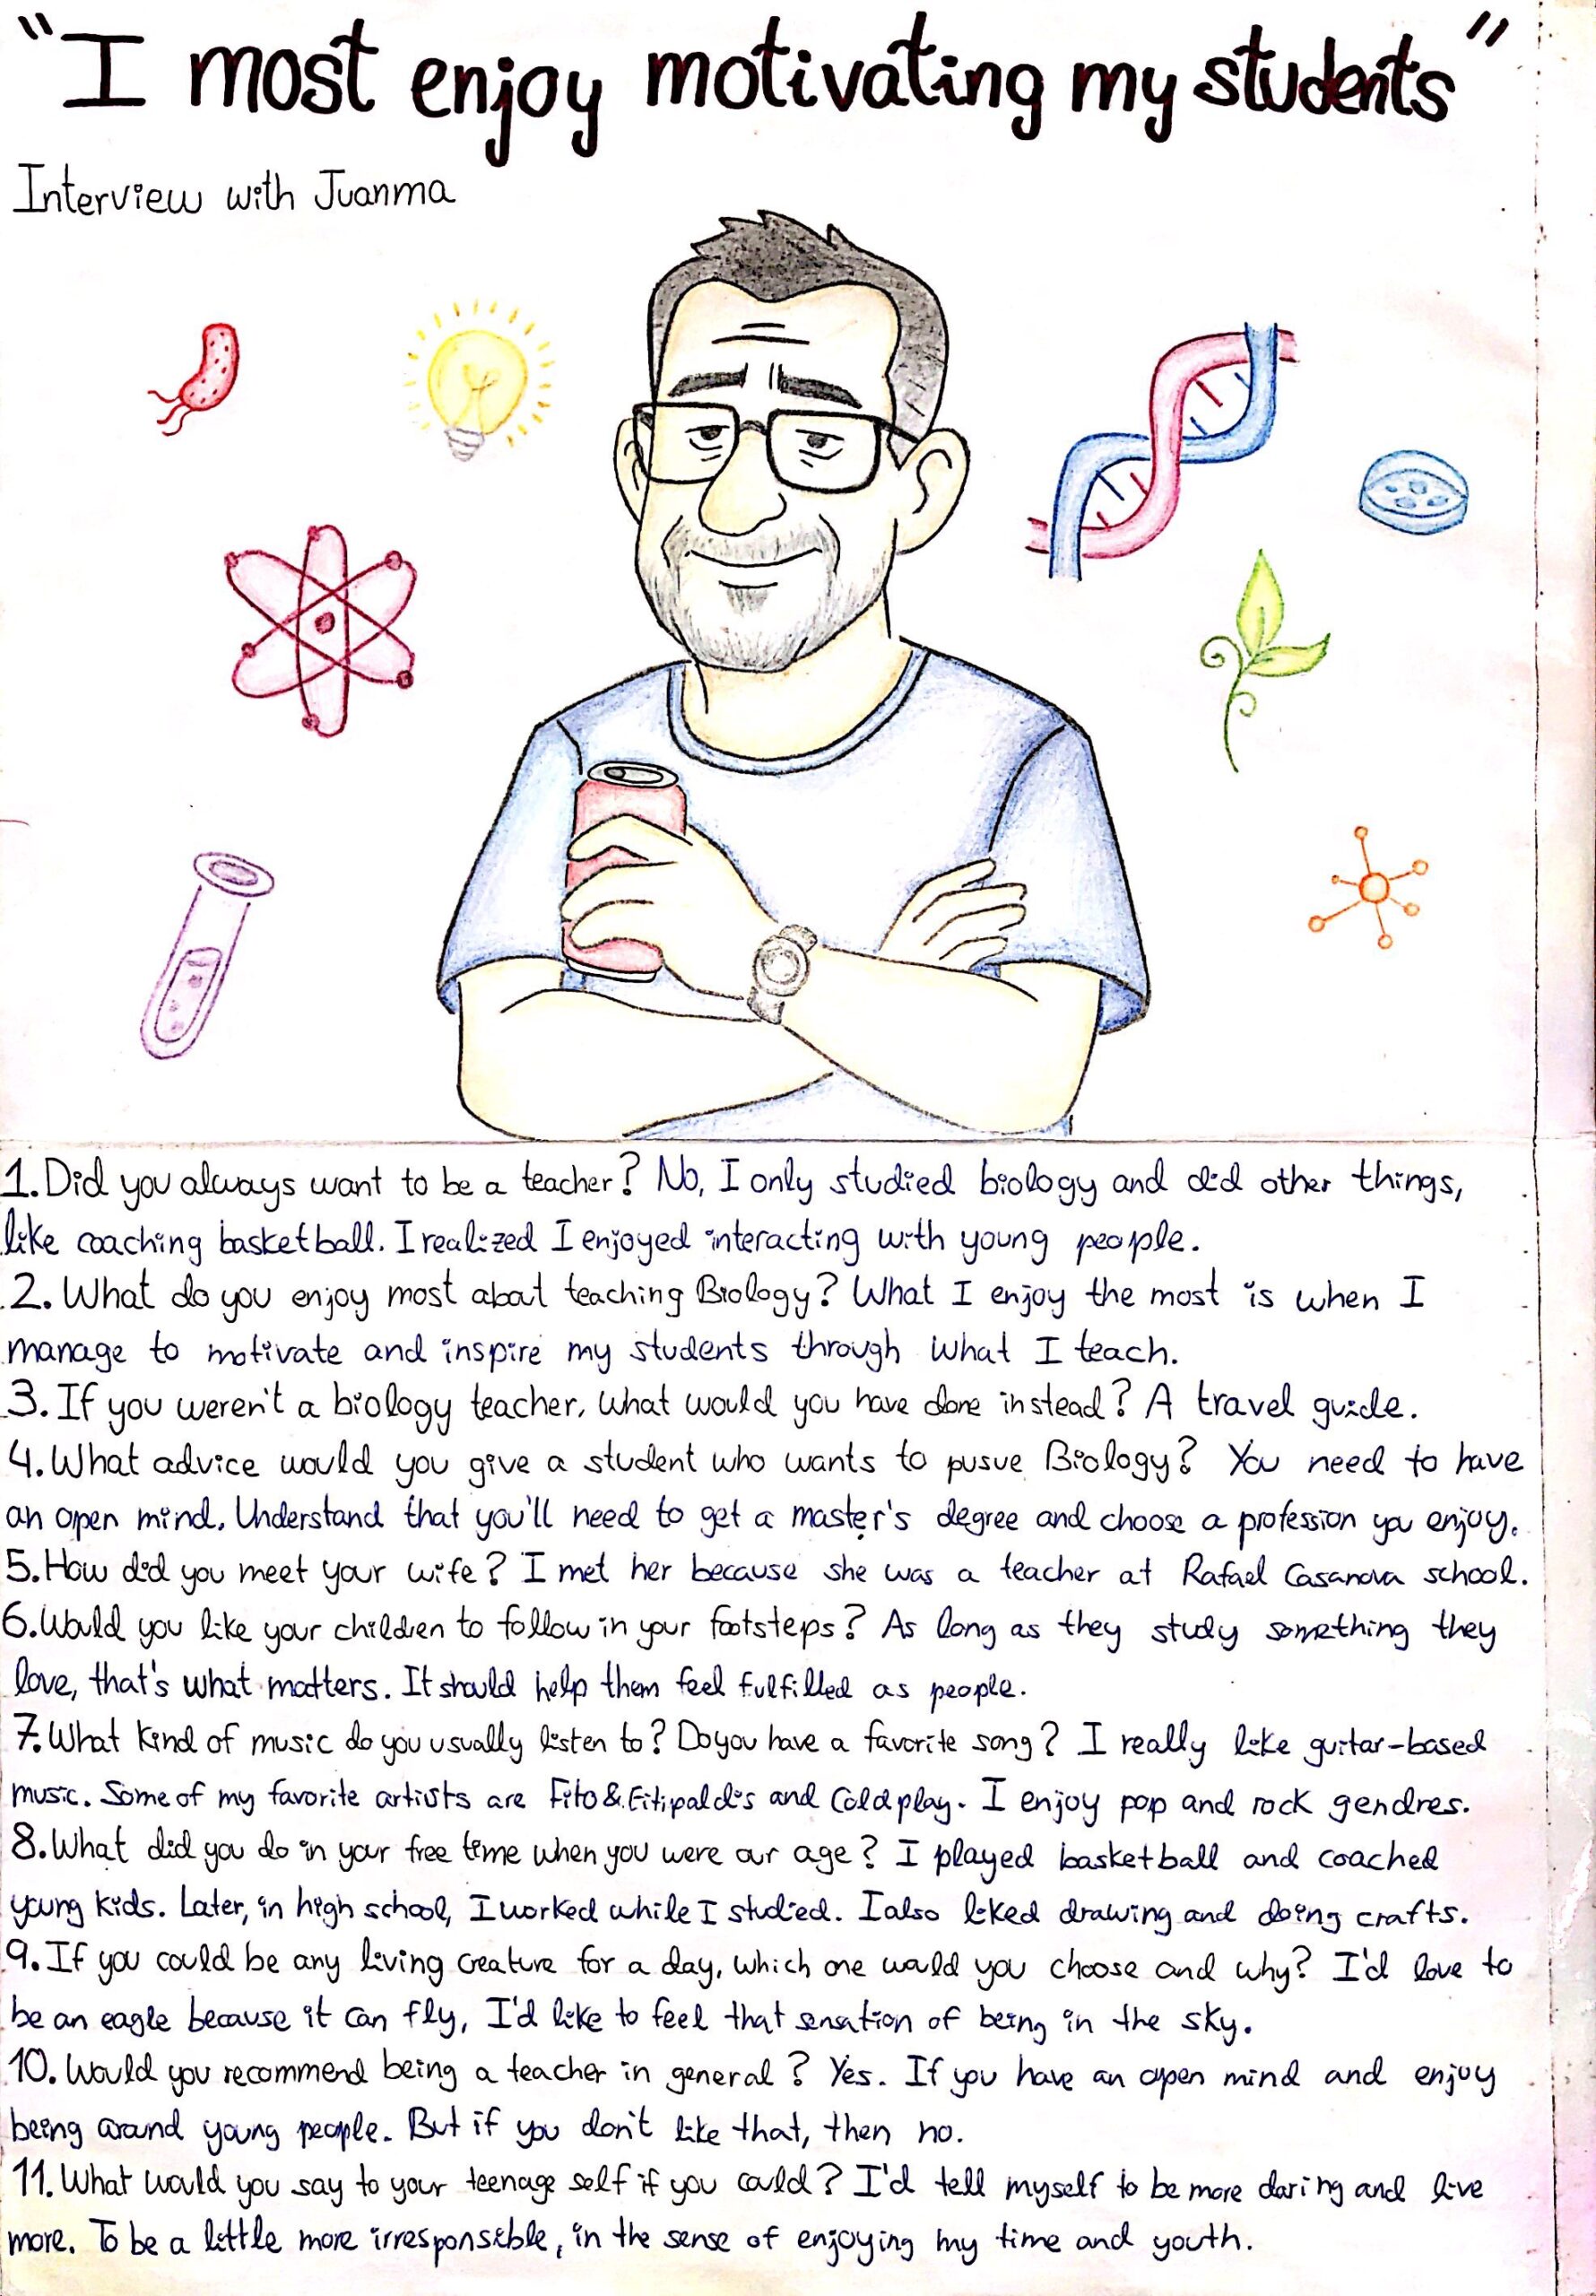 "I most enjoy motivating my students"
Interview with Juanma
1. Did you always want to be a teacher? No, I only studied biology and did other things,
like coaching basketball. I realized I enjoyed interacting with young people.
2. What do you enjoy most about teaching Biology? What I enjoy the most is when I
manage to motivate and inspire my students through what I teach.
3. If you weren't a biology teacher, what would you have done instead? A travel guide.
4. What advice would you give a student who wants to pusue Biology? You need to have
an open mind. Understand that you'll need to get a master's degree and choose a profession you enjoy.
5. How did you meet your wife? I met her because she was a teacher at Rafael Casanova school.
6. Would you like your children to follow in your footsteps? As long as they study something they
love, that's what matters. It should help them feel fulfilled as people.
7. What kind of music do you usually listen to? Do you have a favorite song? I really like guitar-based
music. Some of my favorite artists are Fito & Fitipaldis and Coldplay. I enjoy pop and rock gendres.
8. What did you do in your free time when you were our age? I played basketball and coached
young kids. Later, in high school, I worked while I studied. I also liked drawing and doing crafts.
9. If you could be any living creature for a day, which one would you choose and why? I'd love to
be an eagle because it can fly, I'd like to feel that sensation of being in the sky.
10. Would you recommend being a teacher in general? Yes. If you have an open mind and enjoy
being around young people. But if you don't like that, then no.
11. What would you say to your teenage self if you could? I'd tell myself to be more daring and live
more. To be a little more irresponsible, in the sense of enjoying my time and youth.